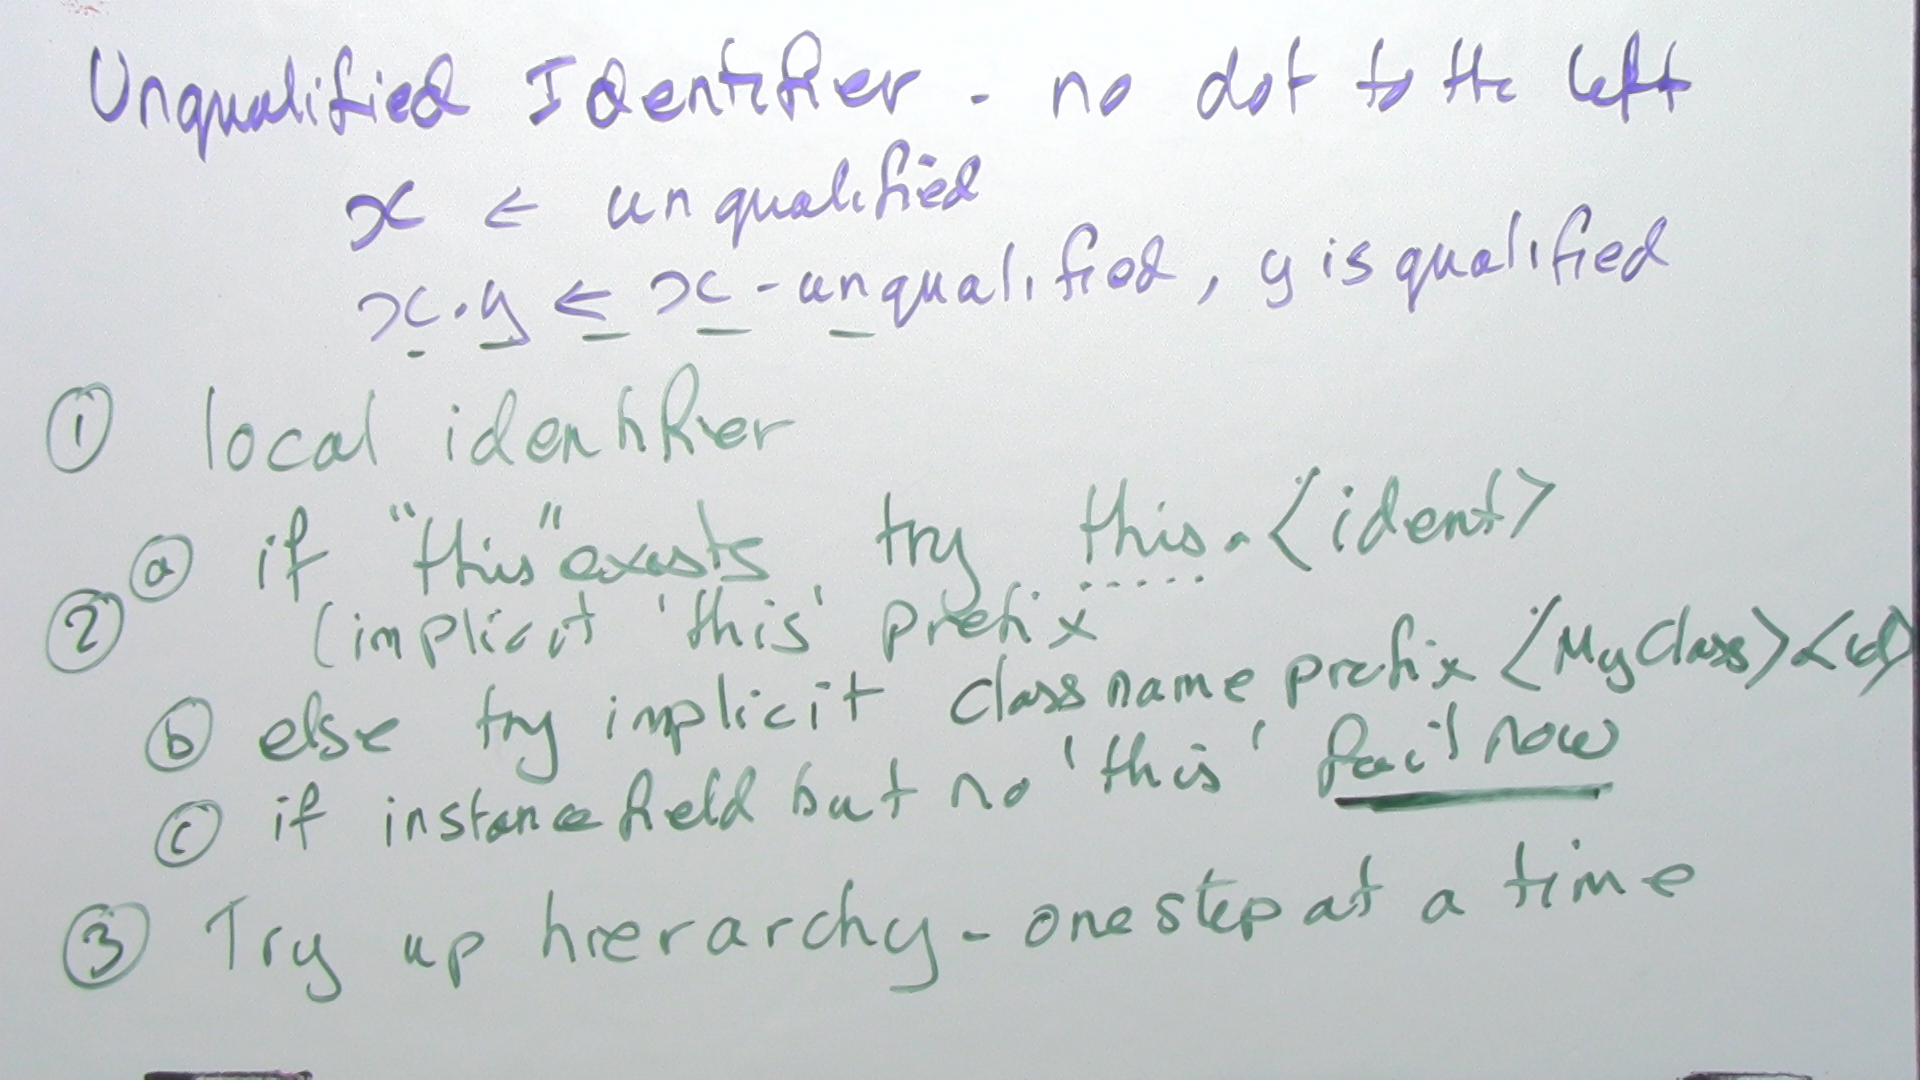 Unqualified Identifier - no dot to the left
x ← unqualified
x.y ← x - unqualified, y is qualified
① local identifier
② ⓐ if "this" exists try this.<ident>
(implicit 'this' prefix
ⓑ else try implicit classname prefix <MyClass>.<id>
ⓒ if instance field but no 'this' fail now
③ Try up hierarchy - one step at a time